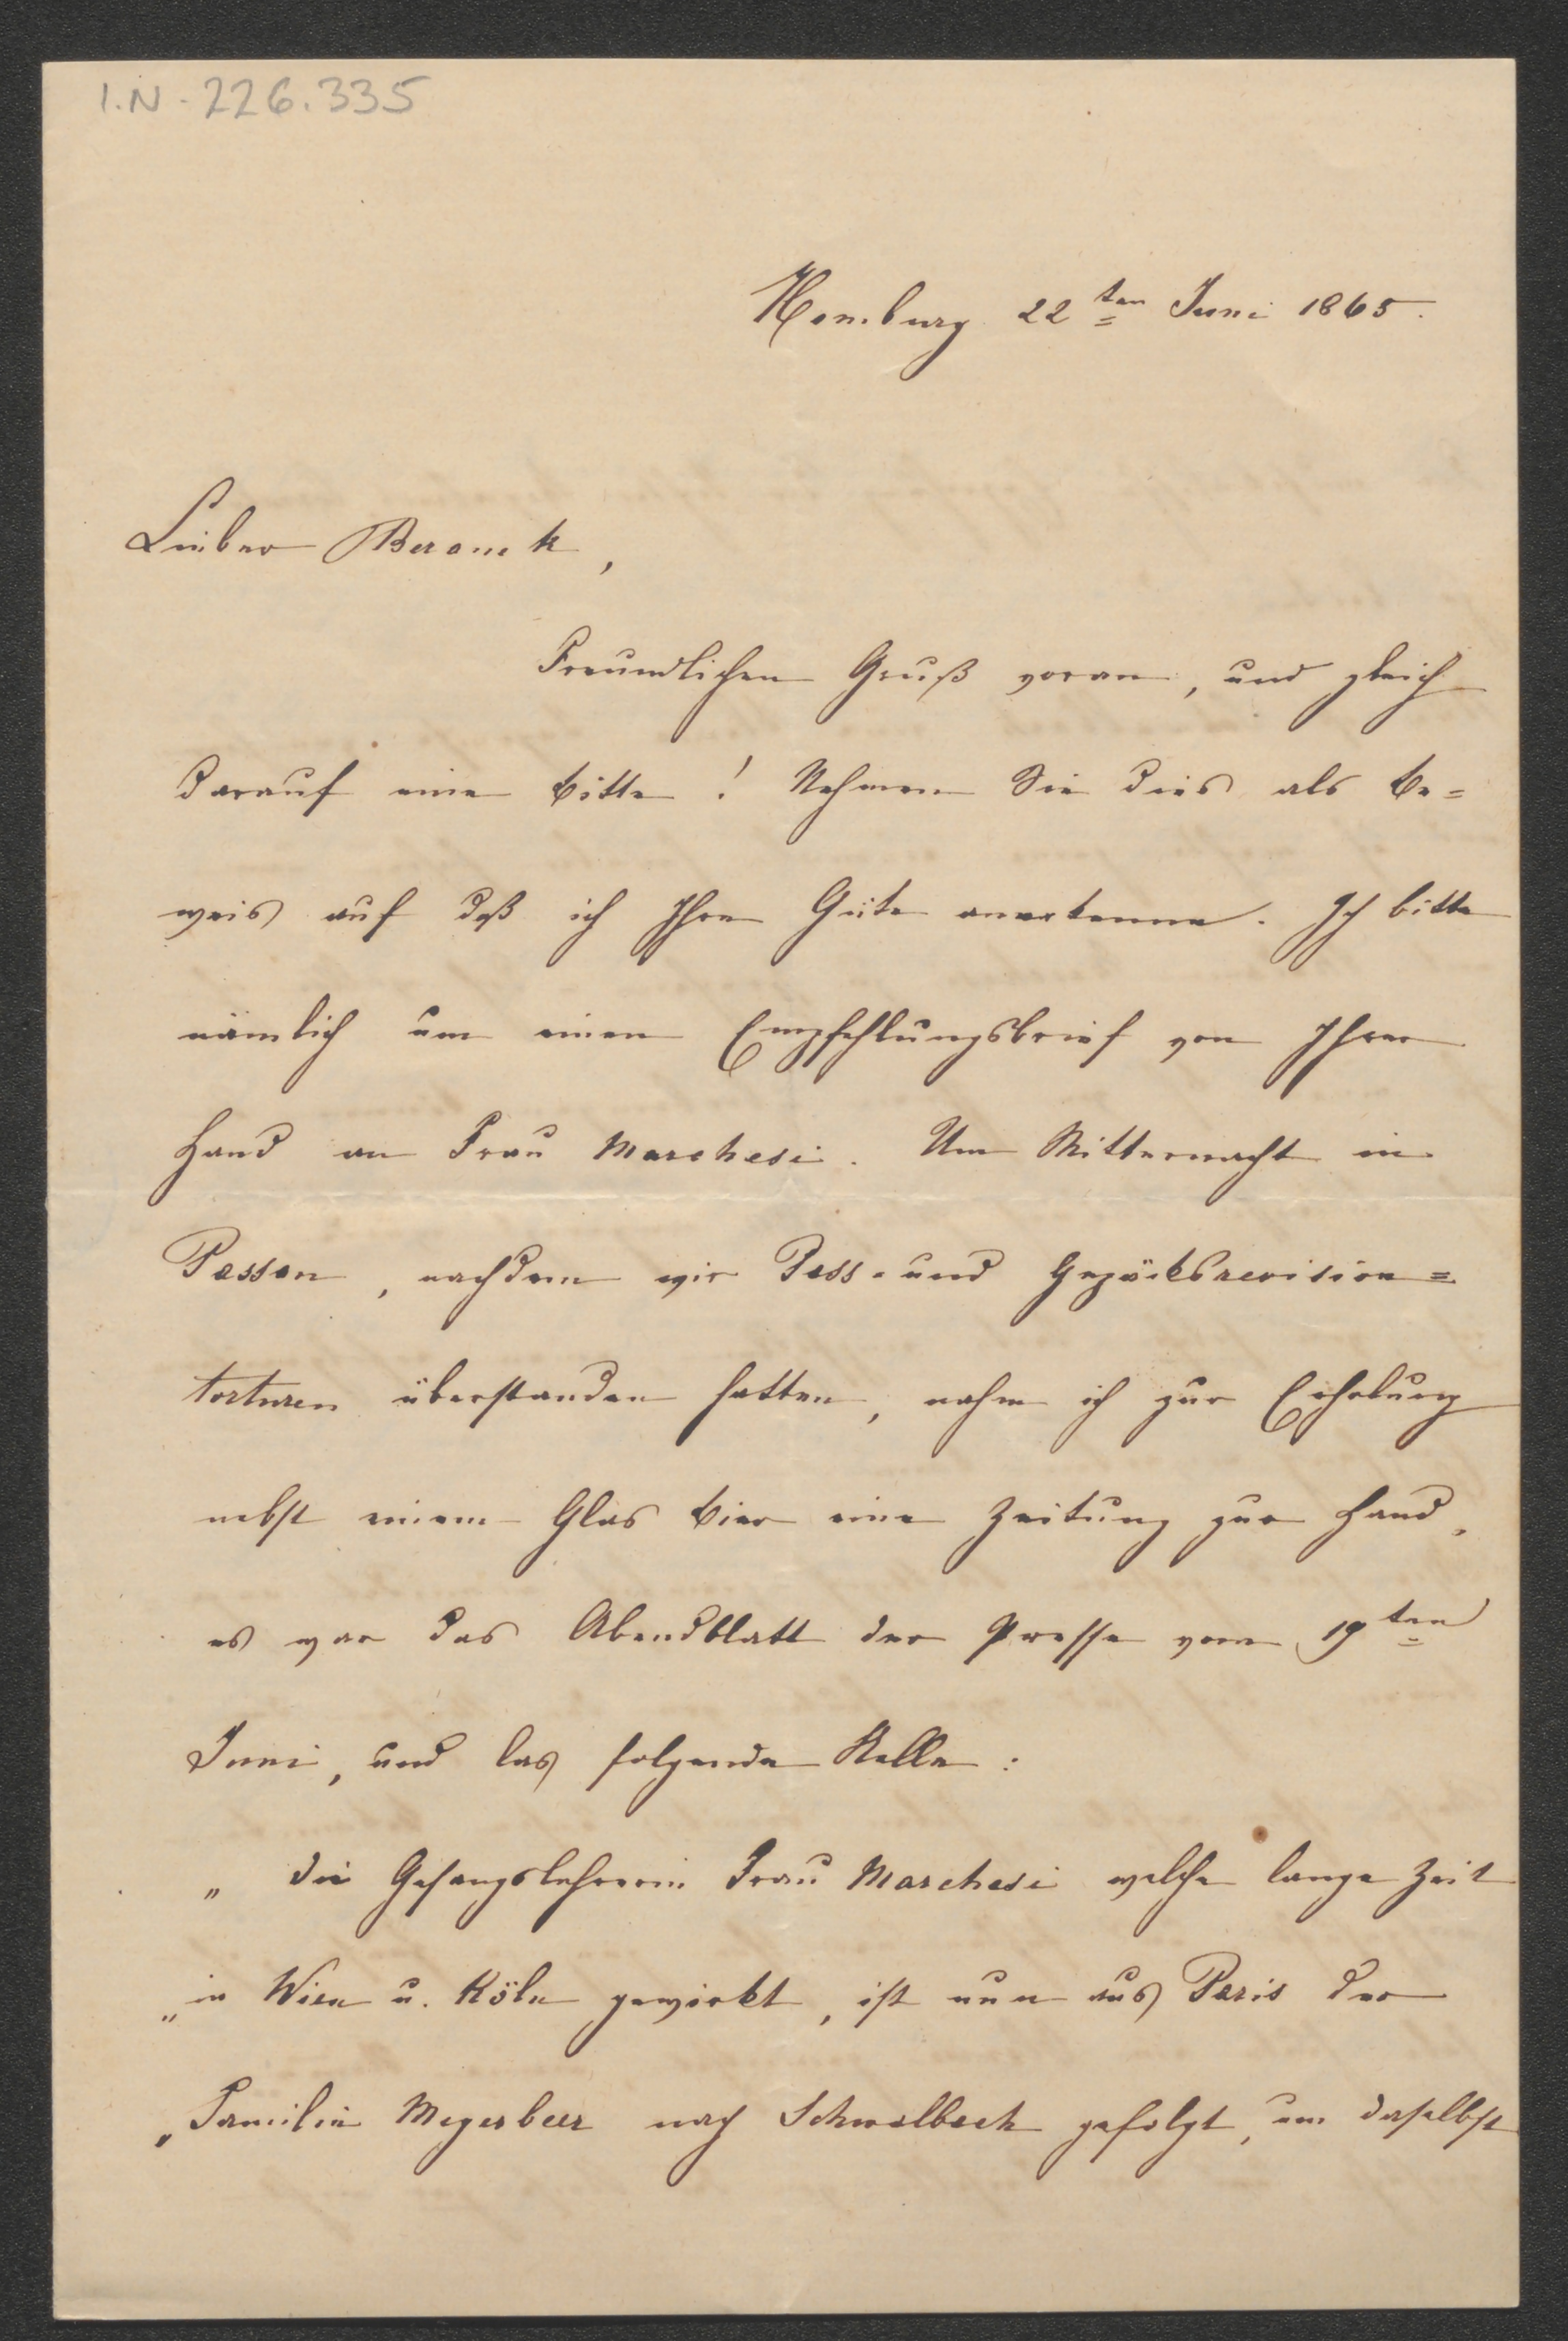 I.N. 226.335
Homburg 22ten Juni 1865.
Lieber Beranek,
Freundlichen Gruß voran, und gleich
darauf eine Bitte! Nehmen Sie dies als Be=
weis auf daß ich Ihre Güte anerkenne. Ich bitte
nämlich um einen Empfehlungsbrief von Ihrer
Hand an Frau Marchesi. Um Mitternacht in
Passau, nachdem wir Pass- und Gepäcksrevision=
torturen überstanden hatten, nahm ich zur Erholung
nebst einem Glas Bier eine Zeitung zur Hand,
es war das Abendblatt der Presse vom 19ten
Juni, und las folgende Stelle:
„ die Gesangslehrerin Frau Marchesi welche lange Zeit
„ in Wien u. Köln gewirkt, ist nun aus Paris der
„ Familie Meyerbeer nach Schwalbach gefolgt, um daselbst